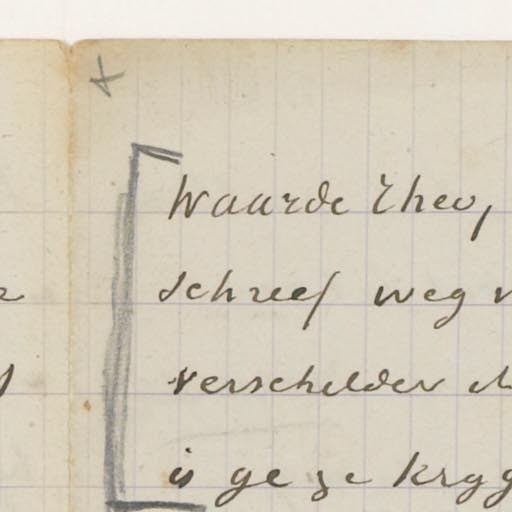 Waarde Theo,
schreef weg
verschelder
is ge ze kryg